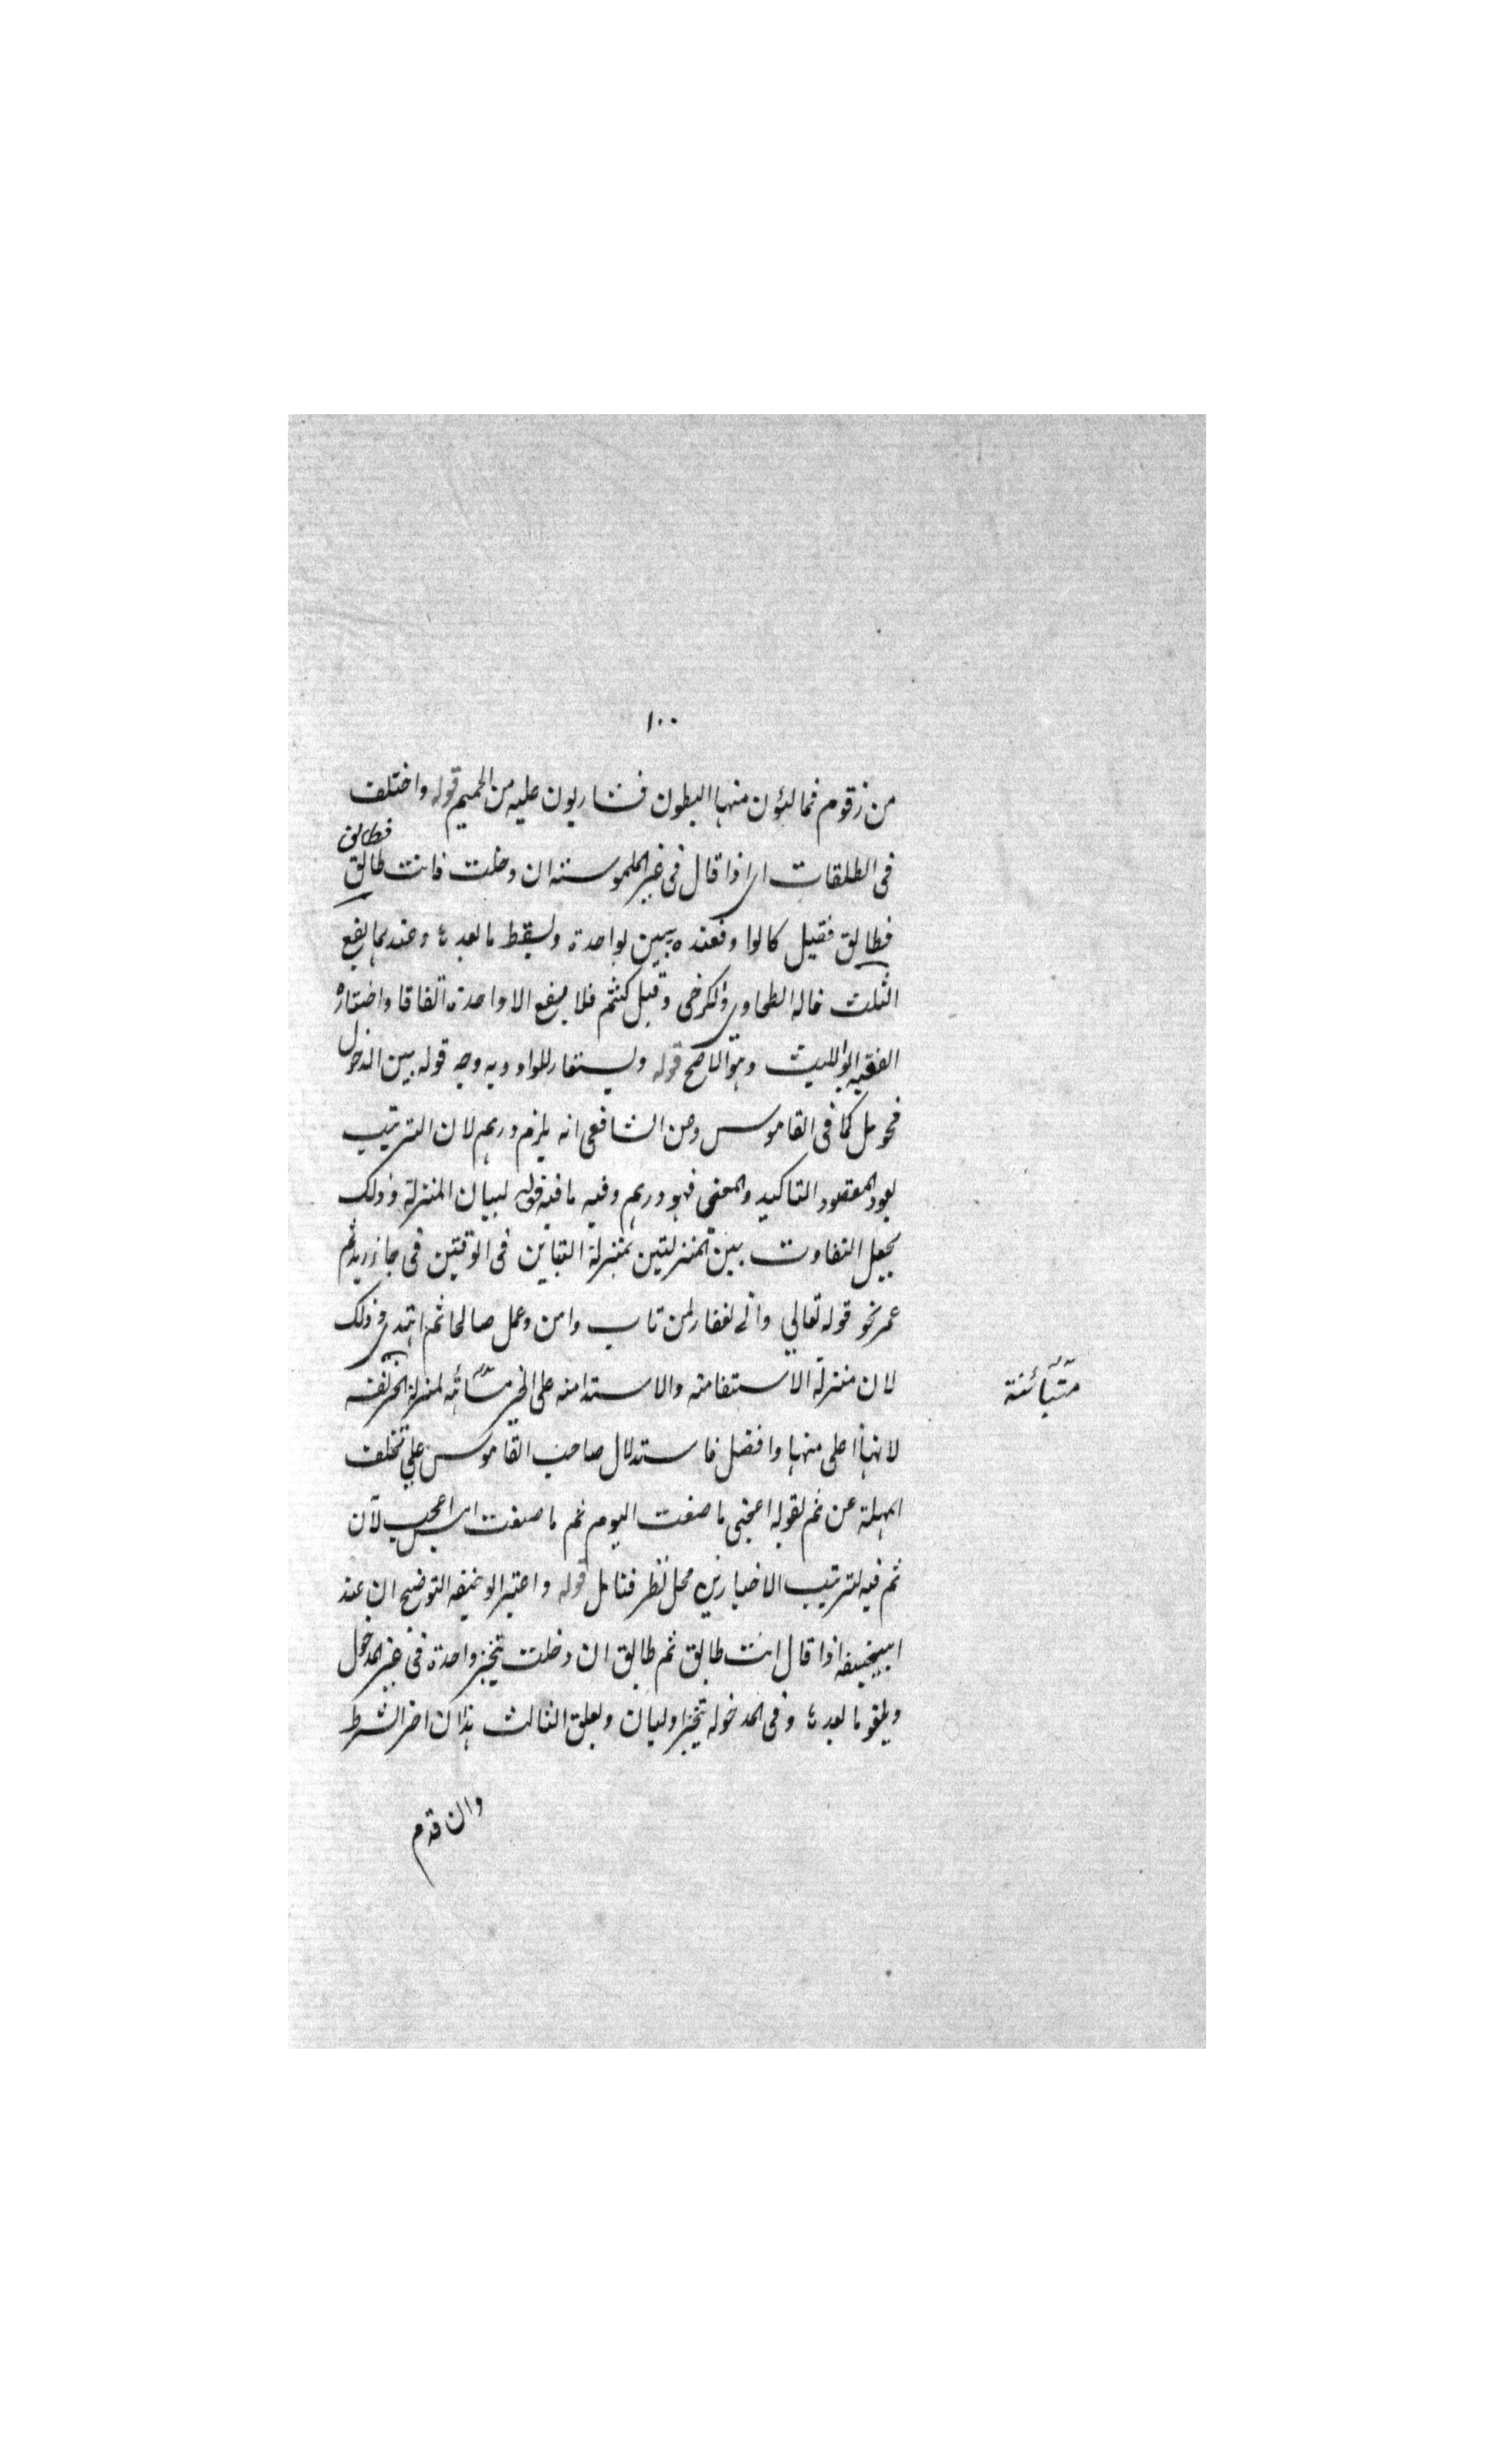 ١٠٠
من زقوم فمالئون منها البطون فشاربون عليه من الحميم قوله واختلف
فى الطلقات اى اذا قال فى غير الملموسته ان دخلت فانت طالق
فطالق
فطالق فقيل كالوا و فعنده يبين بواحدة ويسقط ما بعدها وعندهما يقع
الثلث قاله الطحاوى والكرخى وقيل كثم فلا يقع الا واحدة اتفاقا واختاره
الفقيه ابو الليث وهو الاصح قوله ويستعار للواو وبه وجه قوله بين الدخول
فحومل كما فى القاموس وعن الشافعى انه يلزم درهم لان الترتيب
لغو المقصود التاكيد والمعنى فهو درهم وفيه ما فيه قوله لبيان المنزلة وذلك
بجعل التفاوت بين المنزلتين بمنزلة التباين فى الوقتين فى جاء زيد ثم
عمر نحو قوله تعالي وانى لغفار لمن تاب وامن وعمل صالحا ثم اهتدى وذلك
لان منزلة الاستقامته والاستدامته على الخير لمنزلة الخير نفسه
متبائنة
لانها اعلى منها وافضل فاستدلال صاحب القاموس علي تخلف
المهلة عن ثم بقوله اعجبنى ما صنعت اليوم ثم ما صنعت امس اعجب لان
ثم فيه لترتيب الاخبارين محل نظر فتامل قوله واعتبر ابو حنيفه التوضيح ان عند
ابيحنيفه اذا قال انت طالق ثم طالق ان دخلت يتنجز واحدة فى غير المدخول
ويلغو ما بعدها وفى المدخوله تنجز اوليان ويعلق الثالث هذا ان اخر الشرط
وان قدم